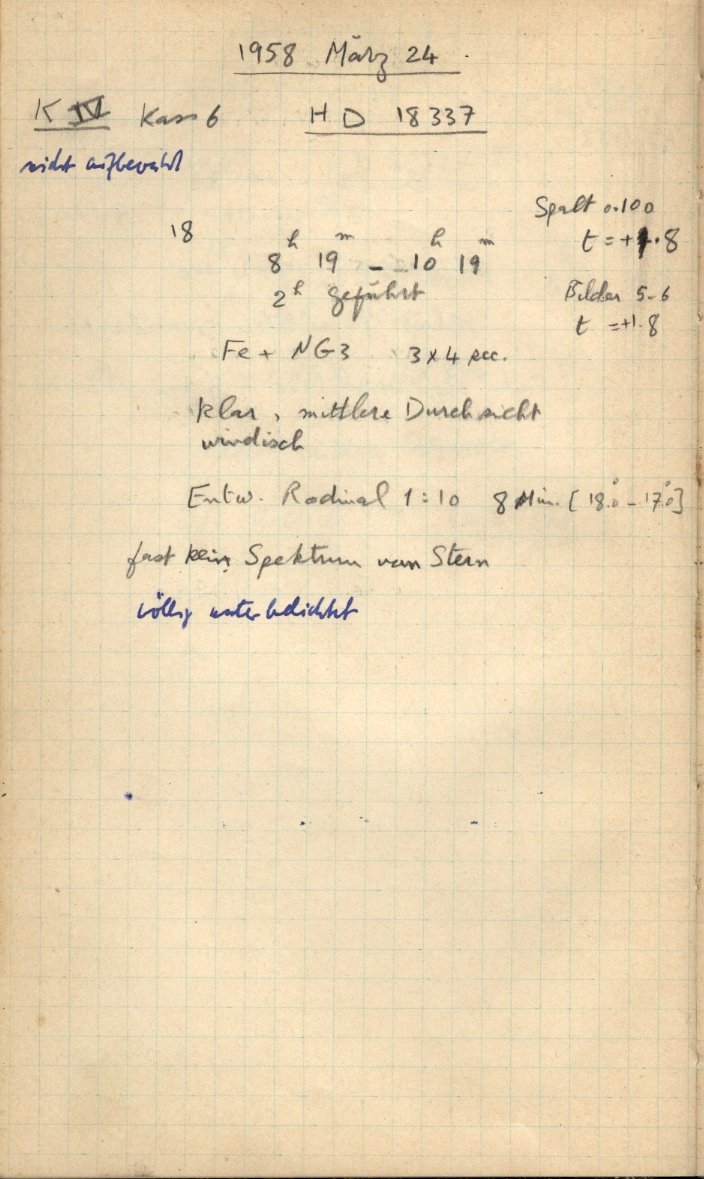 1958 März 24.
K IV Kass 6 HD 18337
nicht aufbewahrt
Spalt 0.100
18
t = +1.8
8h 19m - 10h 19m
2h geführt
Bilder 5-6
t = +1.8
Fe + NG3 3x4 sec.
klar, mittlere Durchsicht
windisch
Entw. Rodinal 1:10 8 Min. [18.°0 - 17.°0]
fast kein Spektrum vom Stern
völlig unterbelichtet